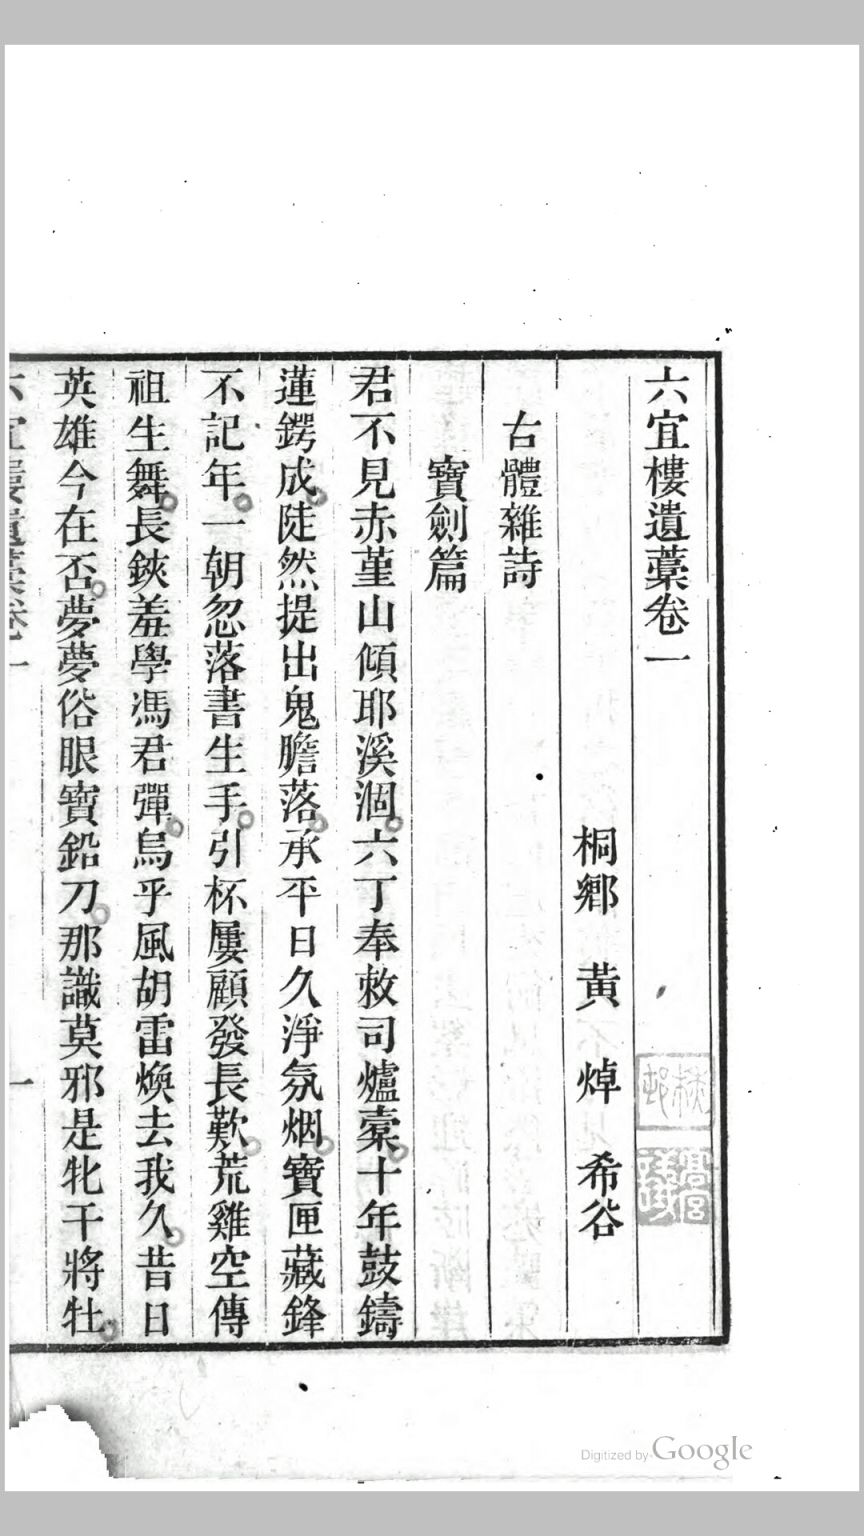 六宜樓遺藁卷一
桐鄉 黃 焯 希谷
古體雜詩
寶劍篇
君不見赤堇山傾耶溪涸六丁奉敕司爐橐十年鼓鑄
蓮鍔成陡然提出鬼膽落承平日久淨氛烟寶匣藏鋒
不記年一朝忽落書生手引杯屢顧發長歎荒雞空傳
祖生舞長鋏羞學馮君彈烏乎風胡雷煥去我久昔日
英雄今在否夢夢俗眼寶鉛刀那識莫邪是牝干將牡
六宜樓遺藁卷一
一
Digitized by Google